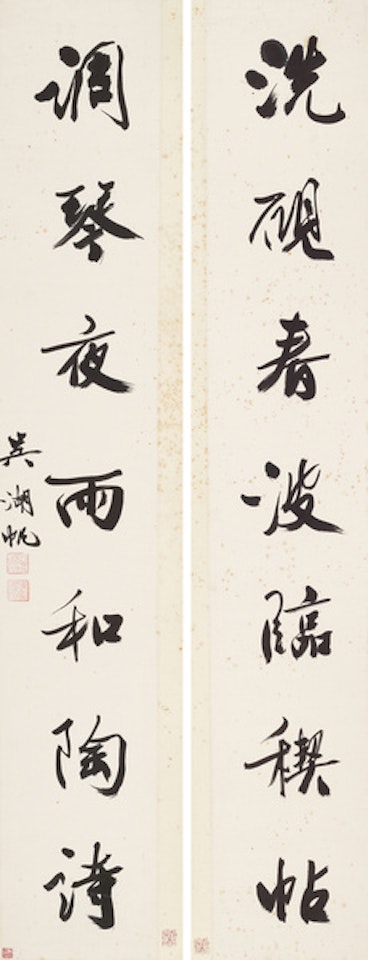 洗硯春波臨稧帖
調琴夜雨和陶詩
吴湖帆